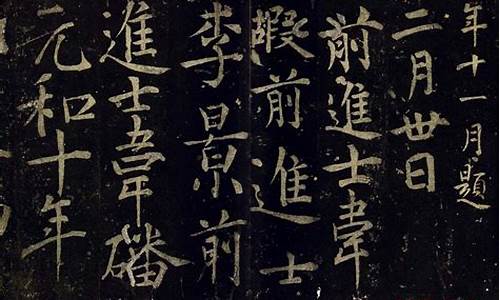 年十一月題
二月丗日
前進士韋
前進士
李景前
進士韋磻
元和十年